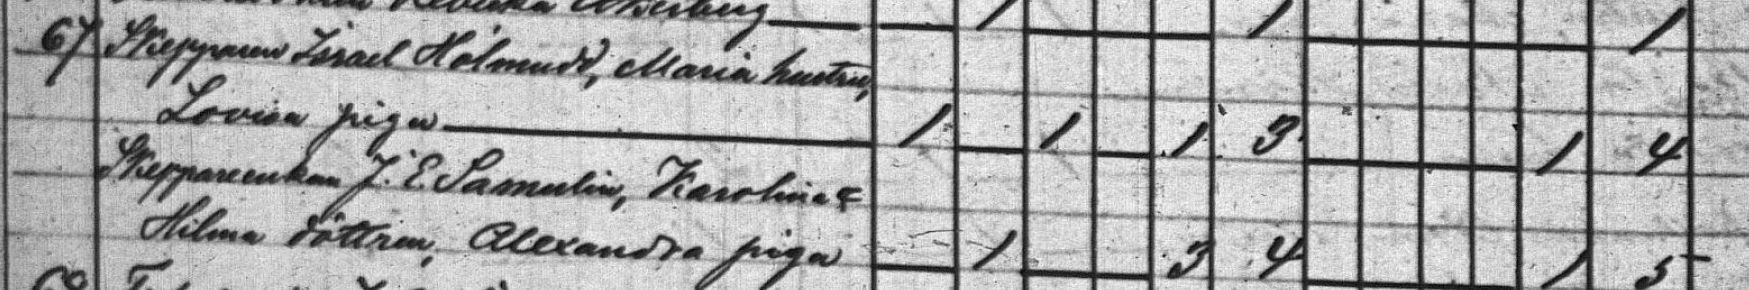 Rebecka Åkerberg 1 1 1
67 Skepparen Israel Holmudd, Maria hustru,
Lovisa piga 1 1 1 3 1 4
Skeppareenkan J. E. Samulin, Karolina &
Hilma döttrar, Alexandra piga 1 3 4 1 5